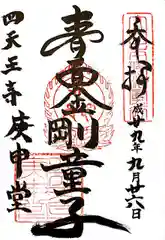 奉拝
平成廿九年九月廿六日
青面金剛童子
四天王寺庚申堂